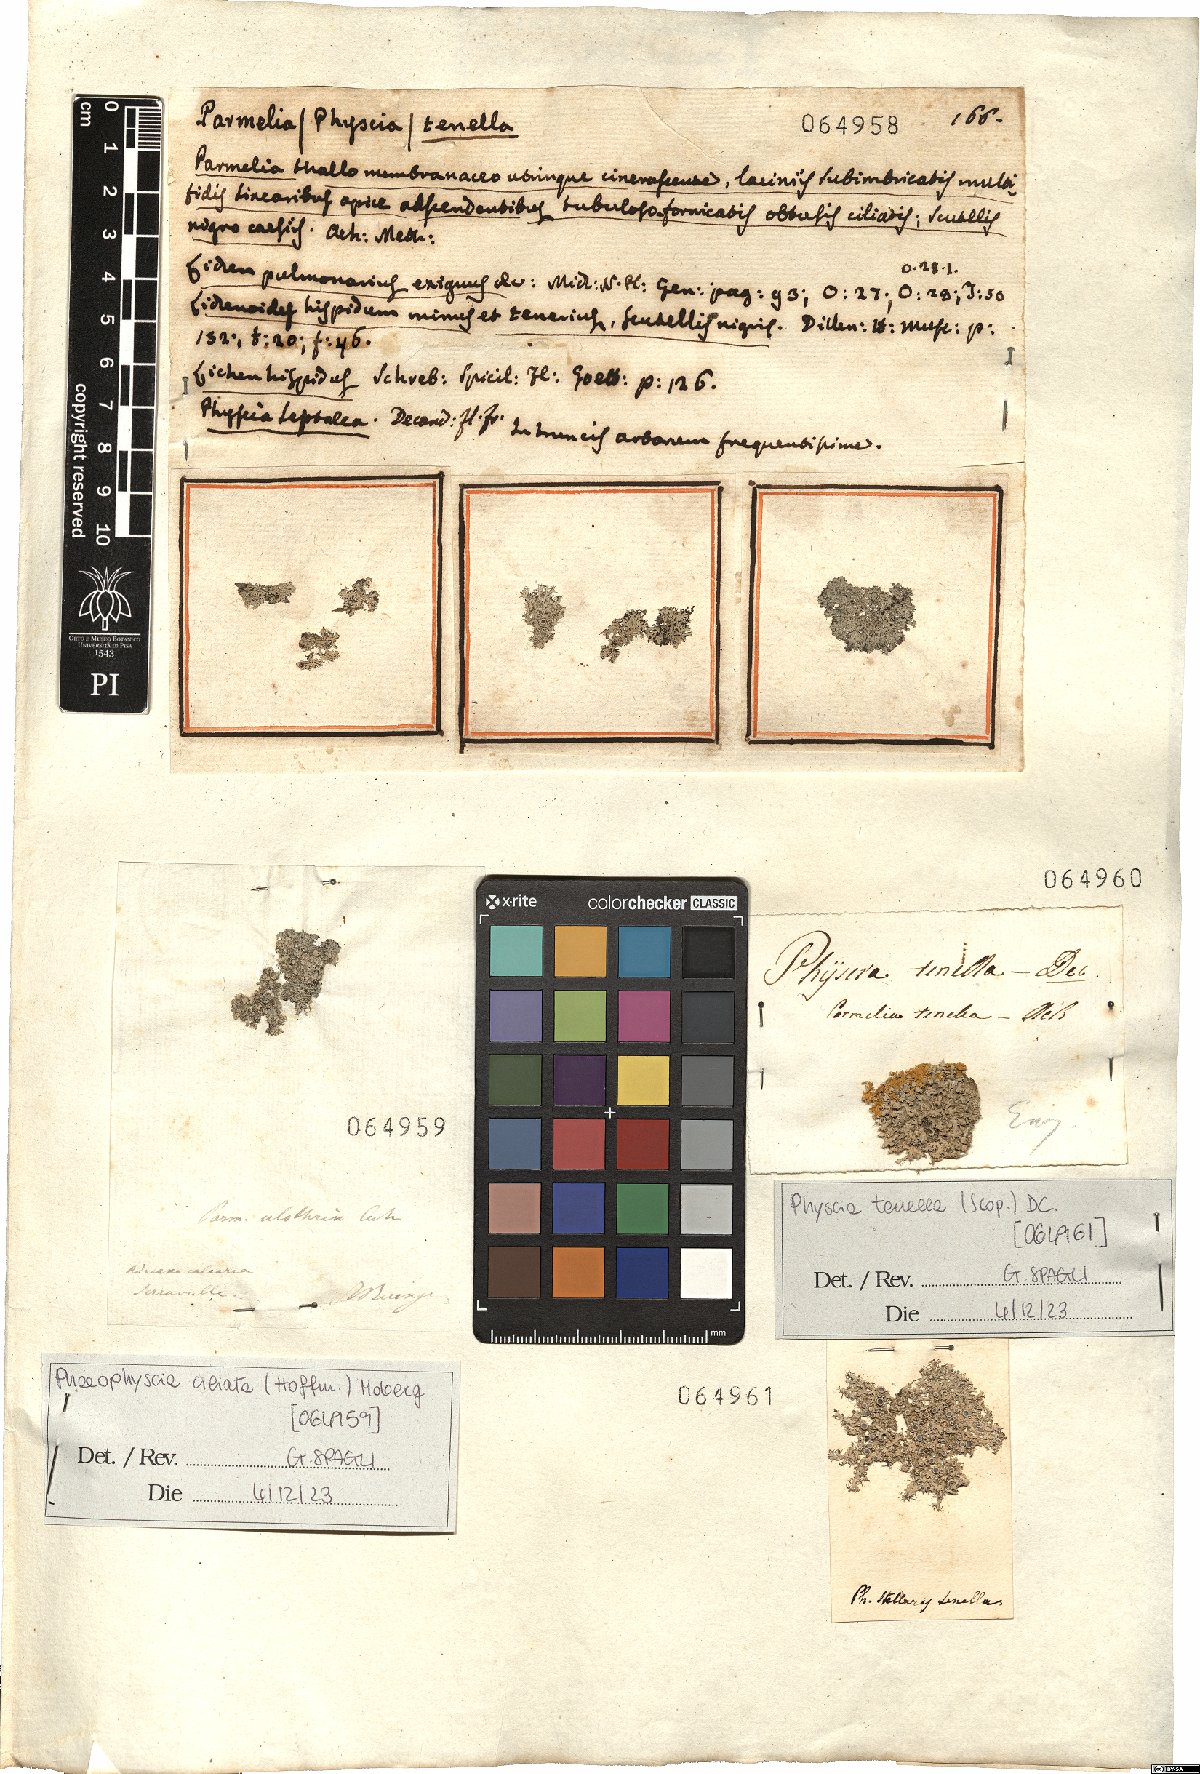 Parmelia / Physcia / tenella
064958
166.
Parmelia thallo membranaceo utrinque cinerascente, laciniis subimbricatis multi-
fidis linearibus apice adscendentibus tubuloso fornicatis obtusis ciliatis; scutellis
nigro caesiis. Ach: Meth:
0.28.1.
Lichen pulmonarius exiguus &c: Mich: N. Pl: Gen: pag: 93; O: 27; O: 28; T: 50
Lichenoides hispidum minus et tenerius, scutellis nigris. Dillen: H: Musc: p:
152; t: 20; f: 46.
Lichen hispidus Schreb: Spicil: Fl: p: 126.
Physcia leptalea. Decand: fl. fr.
In truncis arborum frequentissime.
cm
0 1 2 3 4 5 6 7 8 9 10
copyright reserved
Orto e Museo Botanico
Università di Pisa
1543
PI
064959
Parm. ulothrix Ach
Serravalle
x-rite
colorchecker CLASSIC
mm
064960
Physcia tenella — Dec.
Parmelia tenella — Ach
Physcia tenella (Scop.) DC.
[064961]
Det. / Rev. G. SPAGLI
Die 4/12/23
Phaeophyscia ciliata (Hoffm.) Moberg
[064959]
Det. / Rev. G. SPAGLI
Die 4/12/23
064961
Ph. stellaris tenella
BY-SA